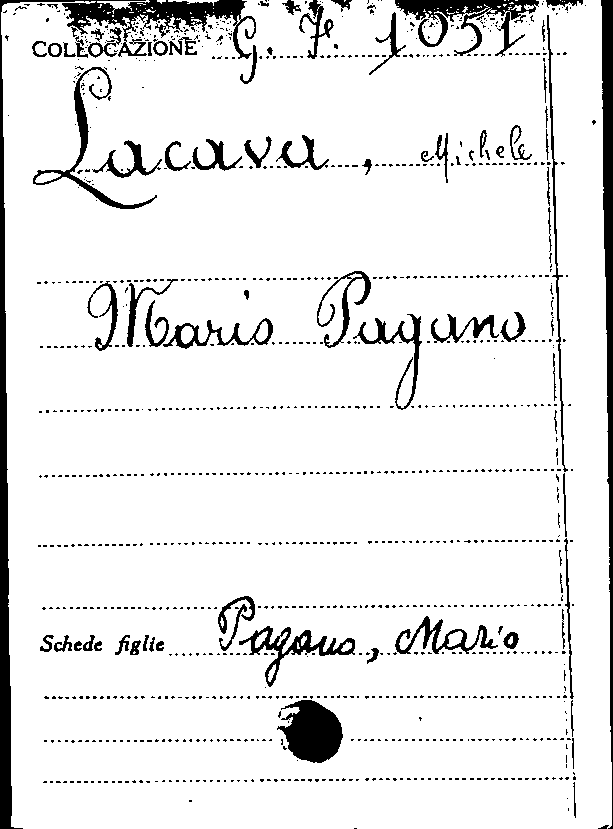 COLLOCAZIONE G. F. 1051
Lacava, Michele
Mario Pagano
Schede figlie Pagano, Mario